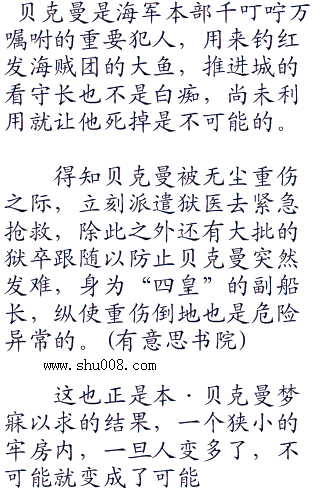 贝克曼是海军本部千叮咛万
嘱咐的重要犯人，用来钓红
发海贼团的大鱼，推进城的
看守长也不是白痴，尚未利
用就让他死掉是不可能的。
得知贝克曼被无尘重伤
之际，立刻派遣狱医去紧急
抢救，除此之外还有大批的
狱卒跟随以防止贝克曼突然
发难，身为“四皇”的副船
长，纵使重伤倒地也是危险
异常的。(有意思书院)
www.shu008.com
这也正是本·贝克曼梦
寐以求的结果，一个狭小的
牢房内，一旦人变多了，不
可能就变成了可能